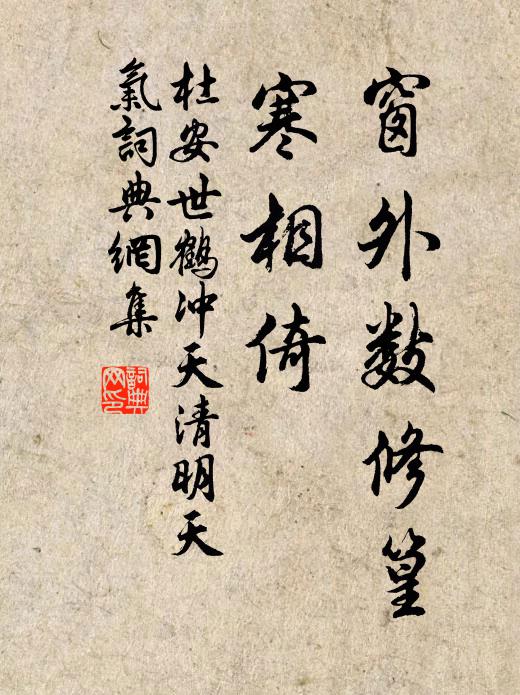 窗外数修篁
寒相倚
杜安世鶴冲天清明天
氣詞典網集
詞典
网印